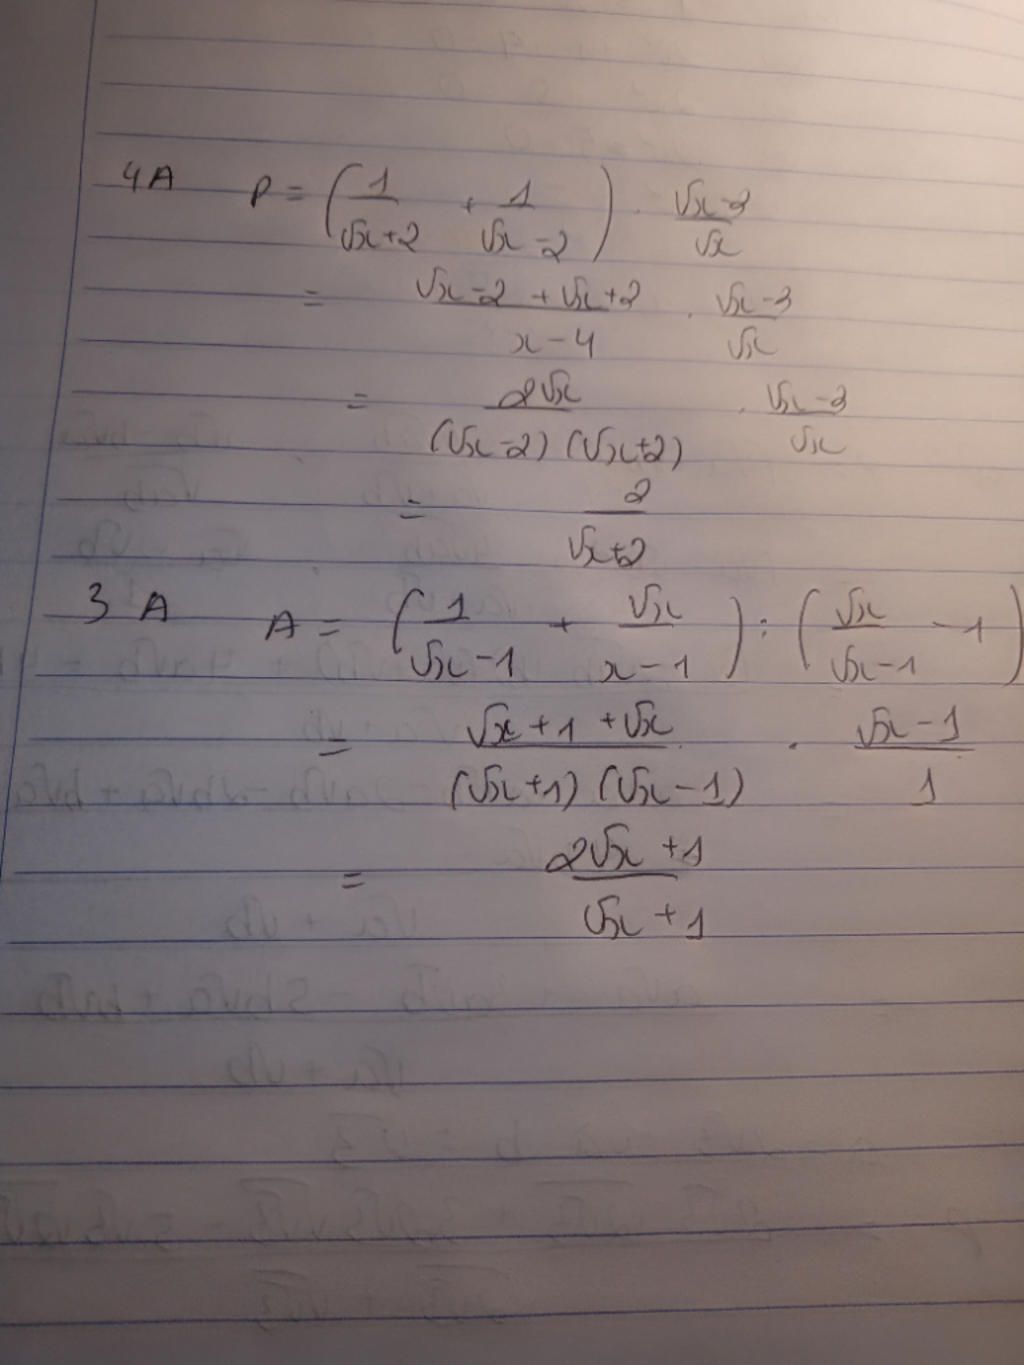 4A P = (1/(√x+2) + 1/(√x-2)) . (√x-2)/√x
= (√x-2+√x+2)/(x-4) . (√x-2)/√x
= 2√x/((√x-2)(√x+2)) . (√x-2)/√x
= 2/(√x+2)
3A A = (1/(√x-1) + √x/(x-1)) : (√x/(√x-1) - 1)
= (√x+1+√x)/((√x+1)(√x-1)) . (√x-1)/1
= (2√x+1)/(√x+1)